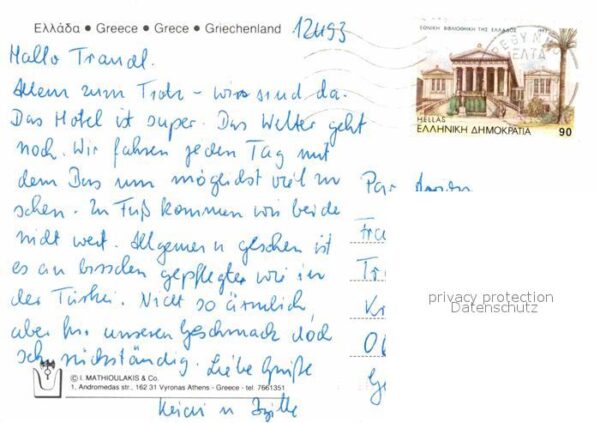 Ελλάδα • Greece • Grece • Griechenland
12493
Hallo Traudl.
Allem zum Trotz - wir sind da.
Das Hotel ist super. Das Wetter geht
noch. Wir fahren jeden Tag mit
dem Bus um möglichst viel zu
sehen. Zu Fuß kommen wir beide
nicht weit. Allgemein gesehen ist
es ein bisschen gepflegter wie in
der Türkei. Nicht so ärmlich
aber für unseren Geschmack doch
sehr rückständig. Liebe Grüße
© I. MATHIOULAKIS & Co.
1, Andromedas str., 162 31 Vyronas Athens - Greece - tel: 7661351
ΕΘΝΙΚΗ ΒΙΒΛΙΟΘΗΚΗ ΤΗΣ ΕΛΛΑΔΟΣ
HELLAS
ΕΛΛΗΝΙΚΗ ΔΗΜΟΚΡΑΤΙΑ 90
Par Avion
Fra
Tr
Kr
privacy protection
Datenschutz